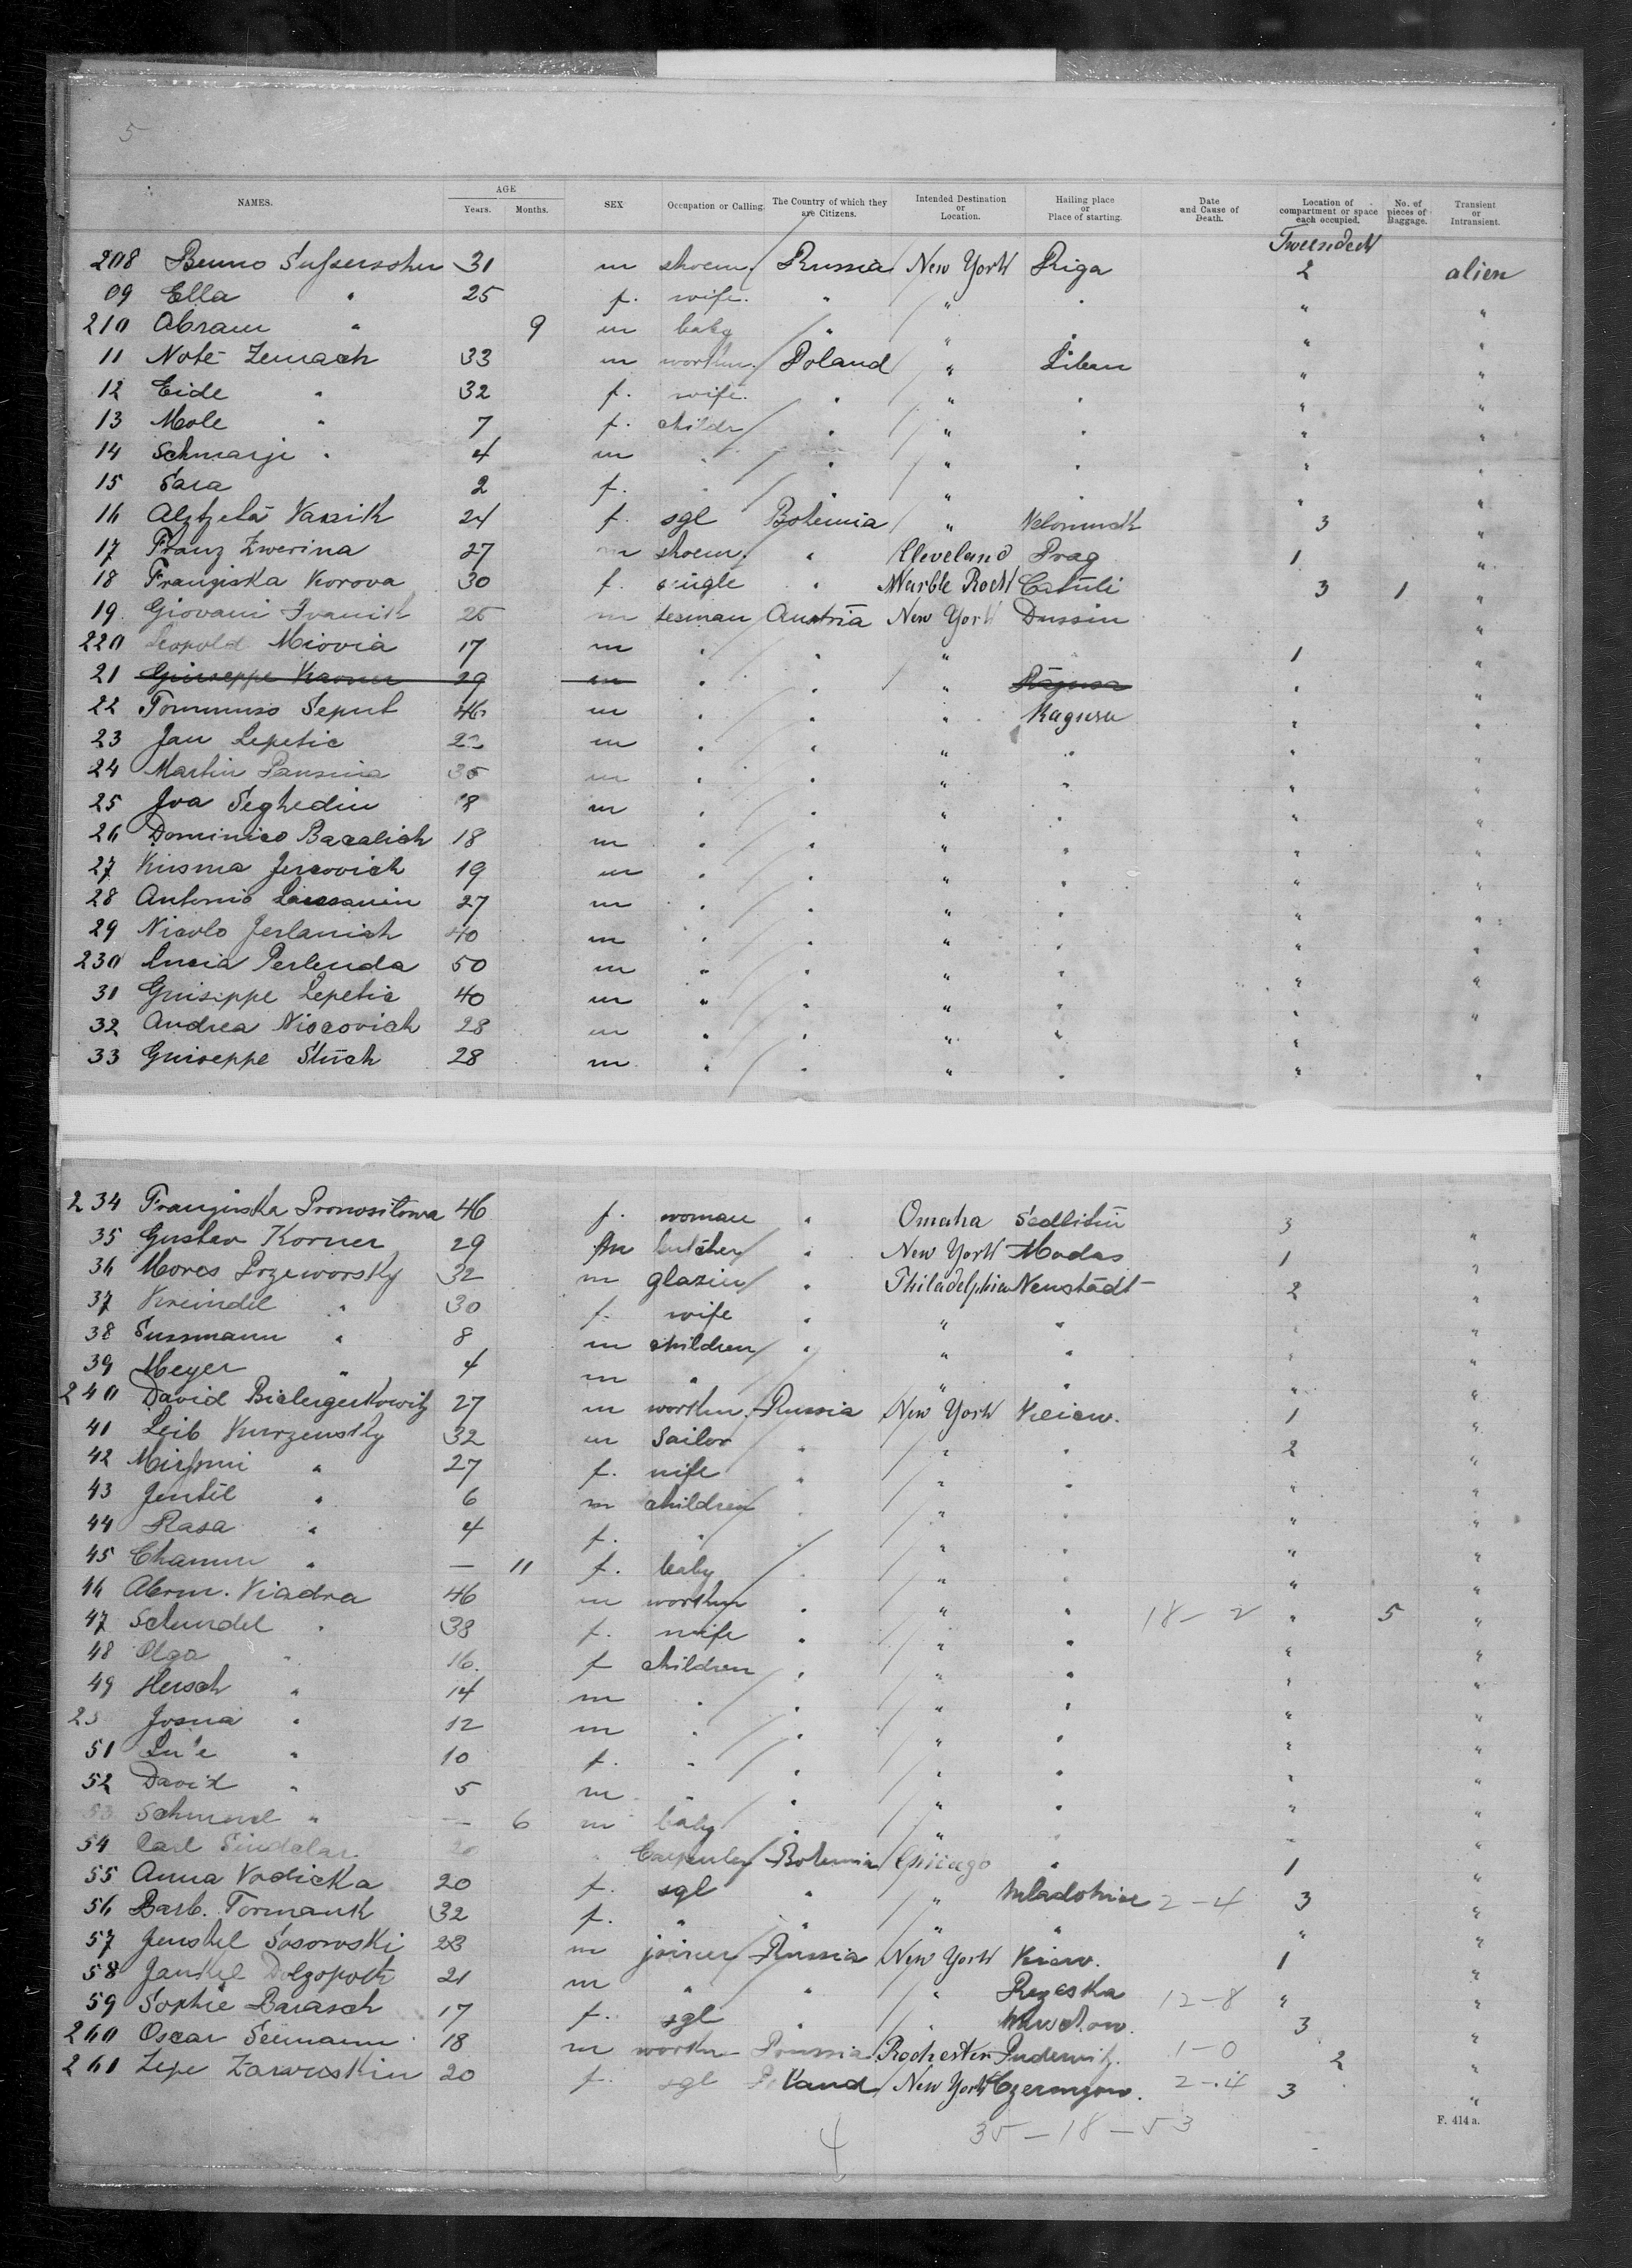 5
NAMES. AGE Years. Months. SEX Occupation or Calling. The Country of which they are Citizens. Intended Destination or Location. Hailing place or Place of starting. Date and Cause of Death. Location of compartment or space each occupied. No. of pieces of Baggage. Transient or Intransient.
Tweendeck
208 Benno Susserssohn 31 m shoem. Russia New York Riga 2 alien
09 Ella " 25 f. wife. " " " " "
210 Abram " 9 m baby " " " " "
11 Note Zemach 33 m workm. Poland " Liban " "
12 Eide " 32 f. wife. " " " " "
13 Mole " 7 f. childr " " " " "
14 Schmarje " 4 m " " " " " "
15 Sara 2 f. " " " " " "
16 Alztzeta Vansik 24 f. sgl Bohemia " 3 "
17 Franz Zwerina 27 m shoem. " Cleveland Prag 1 "
18 Franziska Korova 30 f. single " Marble Rock 3 1 "
19 Giovani Ivanik 25 m seaman Austria New York Dussin "
220 Leopold Miovia 17 m " " " 1 "
21 Giuseppe 29 m " " " Ragusa " "
22 Tommuso Seput 46 m " " " Ragusa " "
23 Jan Lepetic 22 m " " " " " "
24 Martin Pansina 35 m " " " " " "
25 Iva Seghedin 18 m " " " " " "
26 Dominico Bacalich 18 m " " " " " "
27 Kusma Jercovich 19 m " " " " " "
28 Antonio 27 m " " " " " "
29 Nicolo Jerlanich 40 m " " " " " "
230 Lucia Perlenda 50 m " " " " " "
31 Guiseppe Lepetic 40 m " " " " " "
32 Andrea Niscovich 28 m " " " " " "
33 Guiseppe Stuch 28 m " " " " " "
234 Franziska Pronositowa 46 f. woman " Omaha 3 "
35 Gustav Korner 29 m butcher " New York Modas 1 "
36 Mores Przeworsky 32 m glazier " Philadelphia Neustadt 2 "
37 Kreindel " 30 f. wife " " " " "
38 Sussmann " 8 m children " " " " "
39 Meyer " 4 m " " " " " "
240 David 27 m workm. Russia New York Kiew. 1 "
41 Leib Kurzensky 32 m Sailor " " " 2 "
42 " 27 f. wife " " " " "
43 Jentil " 6 m children " " " " "
44 Rasa " 4 f. " " " " " "
45 Chamm " — 11 f. baby " " " " "
46 Abrm. Viadra 46 m workm " " " 18 - 2 " 5 "
47 Schindel " 38 f. wife " " " " "
48 Olga " 16. f children " " " " "
49 Hersch " 14 m " " " " " "
25 Josua " 12 m " " " " " "
51 " 10 f. " " " " " "
52 David " 5 m " " " " " "
53 Schmul " — 6 m baby " " " " "
54 Carl Sindelar 20 " Carpenter Bohemia Chicago " 1 "
55 Anna Vodicka 20 f. sgl " " Mladotice 2 - 4 3 "
56 Barb. Tormank 32 f. " " " " " "
57 Jenskel Sosowski 23 m joiner Russia New York Kiew. 1 "
58 Jankel Dolgopolk 21 m " " " Rezeska 12 - 8 " "
59 Sophie Barasch 17 f. sgl " " 3 "
260 Oscar Seemann 18 m workm Prussia Rochester Pudewitz. 1 - 0 2 "
261 Zepe Zarvuskin 20 f. sgl Poland New York 2 - 4 3 "
F. 414 a.
4 35 - 18 - 53